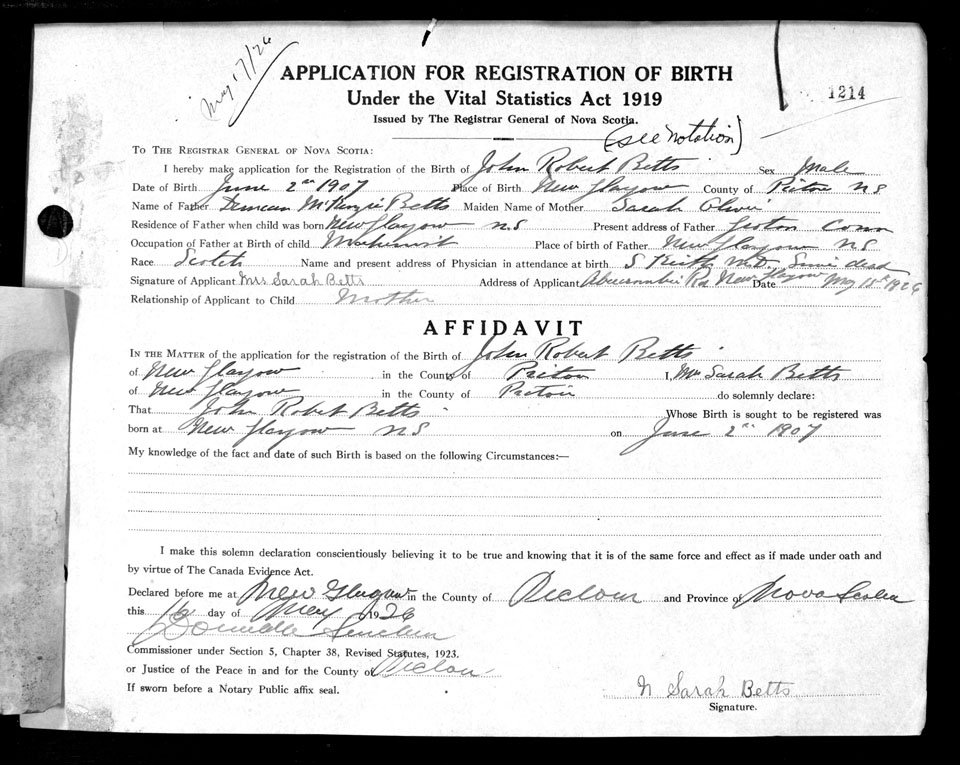 May 17/26
APPLICATION FOR REGISTRATION OF BIRTH
1214
Under the Vital Statistics Act 1919
Issued by The Registrar General of Nova Scotia.
(see notation)
TO THE REGISTRAR GENERAL OF NOVA SCOTIA:
I hereby make application for the Registration of the Birth of John Robert Betts Sex Male
Date of Birth June 2nd 1907 Place of Birth New Glasgow County of Pictou NS
Name of Father Duncan McKenzie Betts Maiden Name of Mother Sarah Oliver
Residence of Father when child was born New Glasgow NS Present address of Father Conn
Occupation of Father at Birth of child Machinist Place of birth of Father New Glasgow NS
Race Scotch Name and present address of Physician in attendance at birth S Keith M.D. Since dead
Signature of Applicant Mrs Sarah Betts Address of Applicant Abercrombie Rd New Glasgow Date May 15th 1926
Relationship of Applicant to Child Mother
AFFIDAVIT
IN THE MATTER of the application for the registration of the Birth of John Robert Betts
of New Glasgow in the County of Pictou I, Mrs Sarah Betts
of New Glasgow in the County of Pictou do solemnly declare:
That John Robert Betts Whose Birth is sought to be registered was
born at New Glasgow NS on June 2nd 1907
My knowledge of the fact and date of such Birth is based on the following Circumstances:—
I make this solemn declaration conscientiously believing it to be true and knowing that it is of the same force and effect as if made under oath and
by virtue of The Canada Evidence Act.
Declared before me at New Glasgow in the County of Pictou and Province of Nova Scotia
this day of May 1926
Commissioner under Section 5, Chapter 38, Revised Statutes, 1923.
or Justice of the Peace in and for the County of Pictou
If sworn before a Notary Public affix seal.
Sarah Betts
Signature.